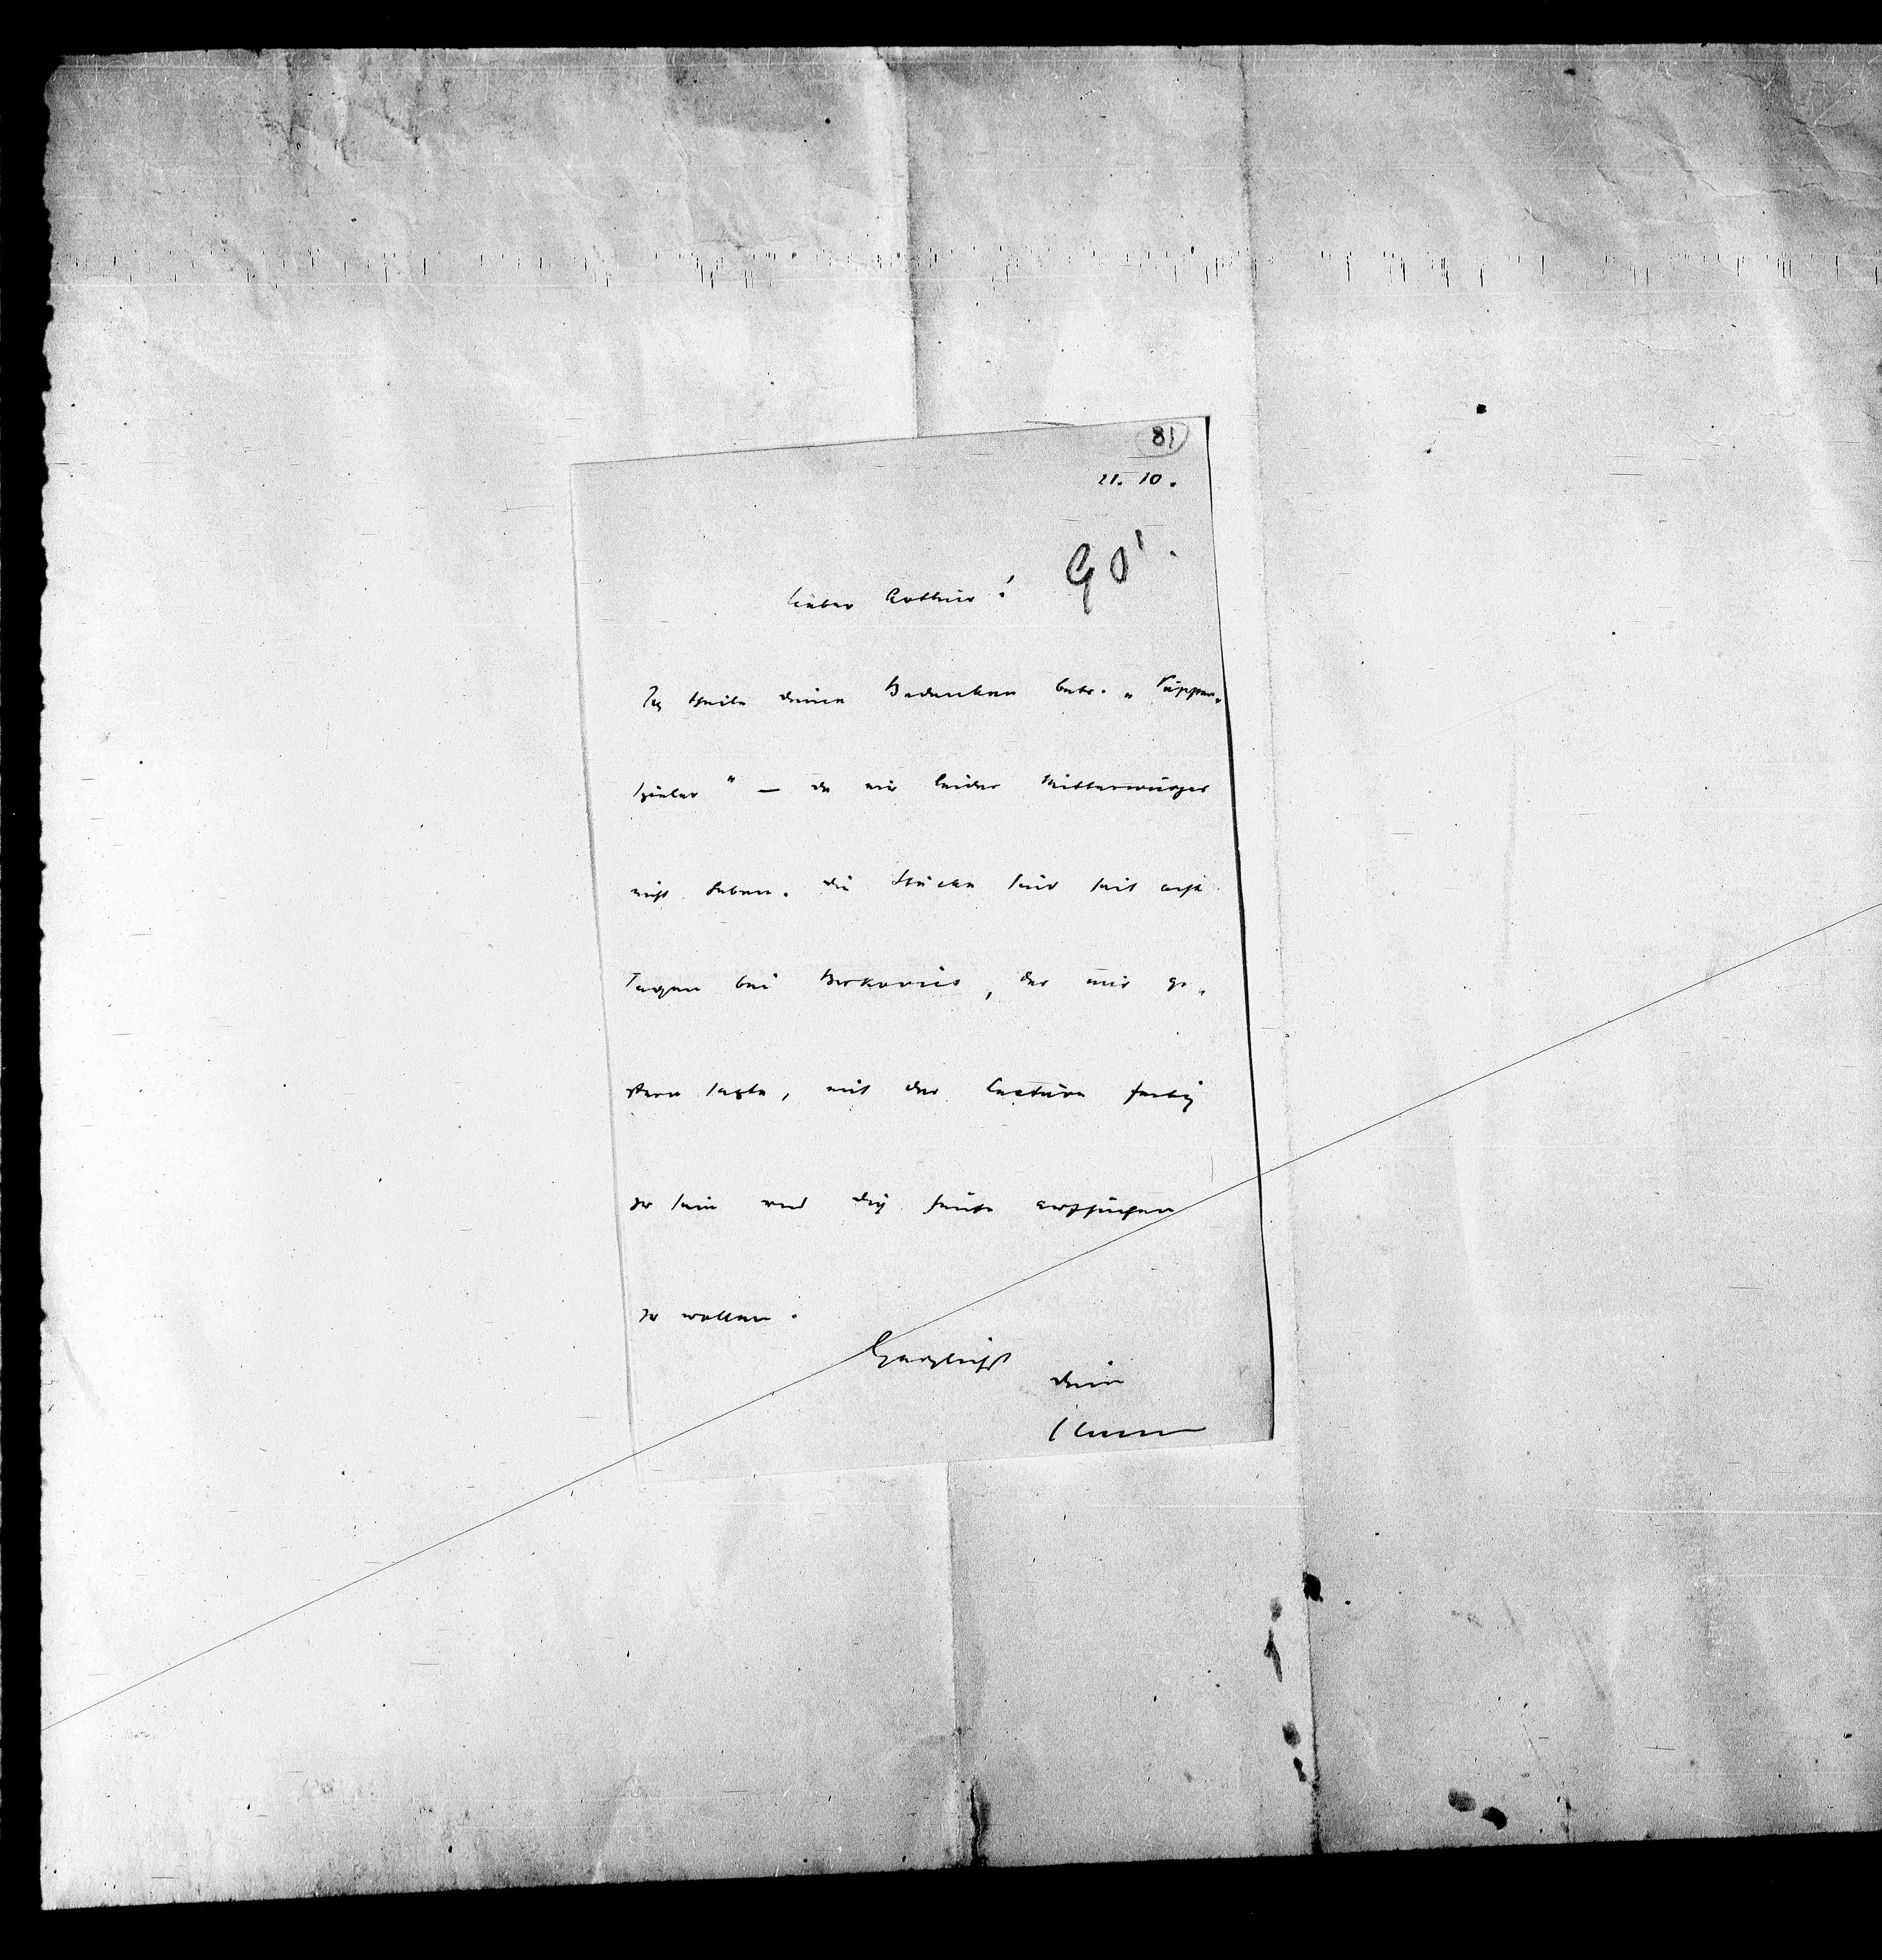 81
21. 10.
90
Lieber Arthur!
Ich theile Deine Bedenken betr. „Puppen-
spieler“ — da wir leider Mitterwurzer
nicht haben. Die Stücke sind seit acht
Tagen bei Brkovics, der mir ge-
stern sagte, mit der Lectüre fertig
zu sein und Dich heute aufsuchen
zu wollen.
Herzlichst
Dein